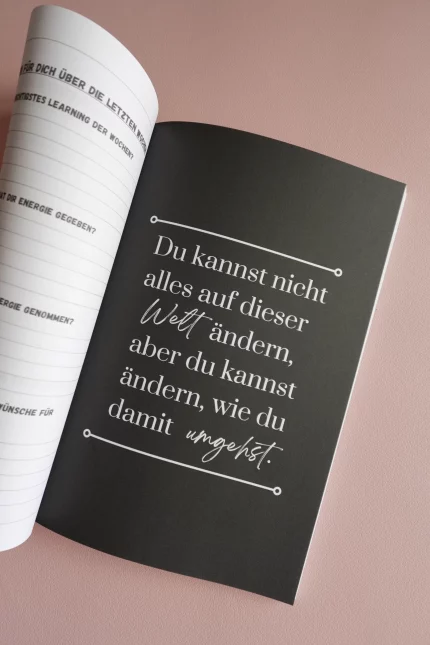 FÜR DICH ÜBER DIE LETZTEN
LEARNING DER WOCHE?
DIR ENERGIE GEGEBEN?
GENOMMEN?
FÜR
Du kannst nicht
alles auf dieser
Welt ändern,
aber du kannst
ändern, wie du
damit umgehst.